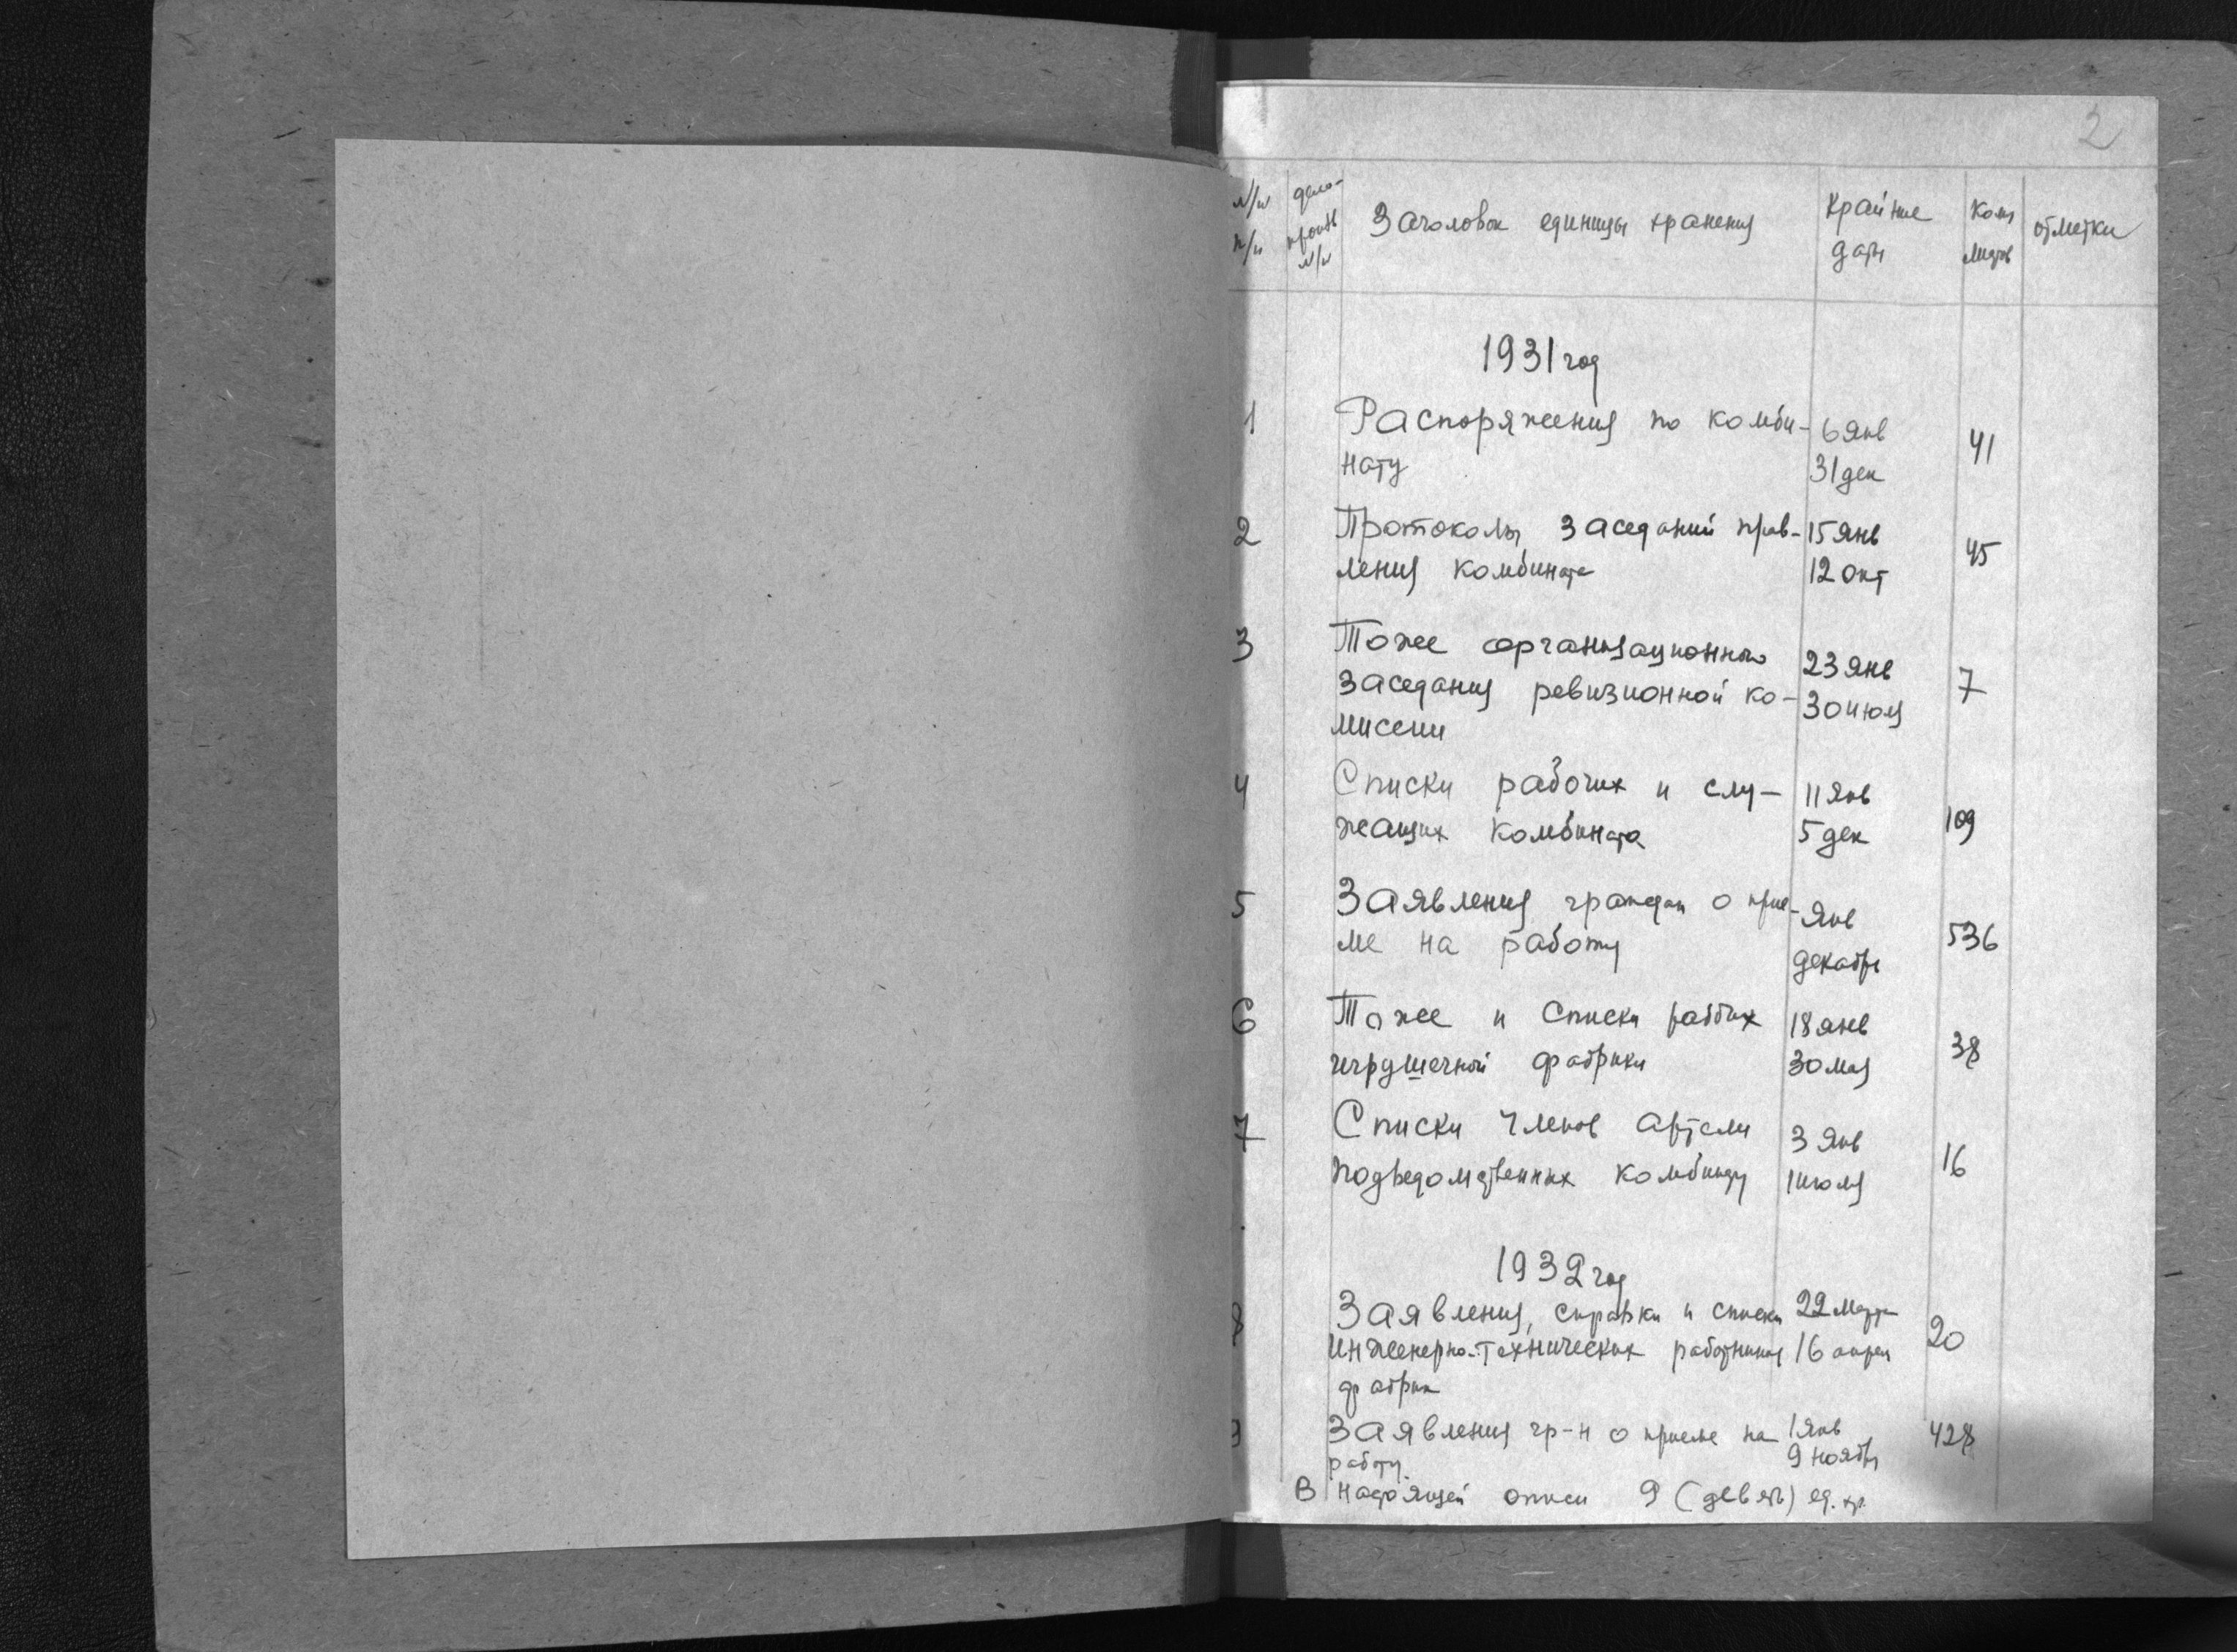 2
N/N п/п
дело-произв N/N
Заголовок единицы хранения
Крайние даты
Кол листов
отметки
1931 год
1 Распоряжения по комби- 6 янв
нату 31 дек 41
2 Протоколы заседаний прав- 15 янв
ления комбината 12 окт 45
3 Тоже организационного 23 янв
заседания ревизионной ко- 30 июля 7
миссии
4 Списки рабочих и слу- 11 янв
жащих комбината 5 дек 109
5 Заявления граждан о прие- янв
ме на работу декабрь 536
6 Тоже и списки рабочих 18 янв
игрушечной фабрики 30 мая 38
7 Списки членов артели 3 янв
подведомственных комбинату 1 июля 16
1932 год
8 Заявления, справки и списки 22 марта
инженерно-технических работников 16 апрел 20
фабрик
9 Заявления гр-н о приеме на 1 янв 428
работу. 9 ноябр
В настоящей описи 9 (девять) ед. хр.